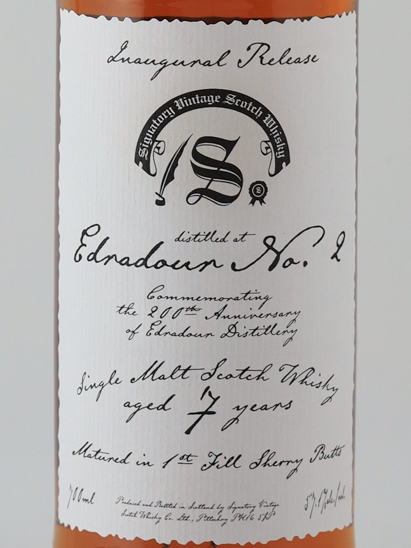 Inaugural Release
Signatory Vintage Scotch Whisky
S.
S
distilled at
Edradour No. 2
Commemorating
the 200th Anniversary
of Edradour Distillery
Single Malt Scotch Whisky
aged 7 years
Matured in 1st Fill Sherry Butts
700ml
Produced and Bottled in Scotland by Signatory Vintage
Scotch Whisky Co. Ltd., Pitlochry PH16 5JP
57.1%alc/vol